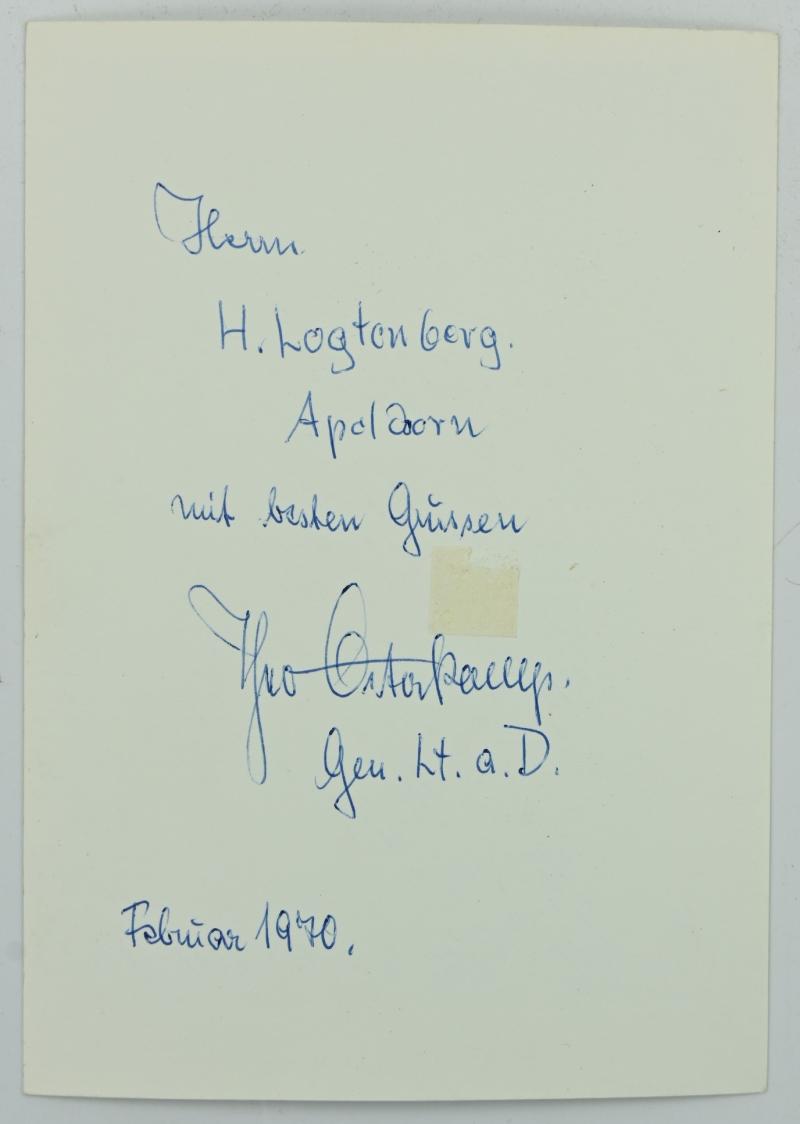 Herrn
H. Logtenberg.
Apeldoorn
mit besten Grüssen
Theo Osterkamp.
Gen. Lt. a. D.
Februar 1970.